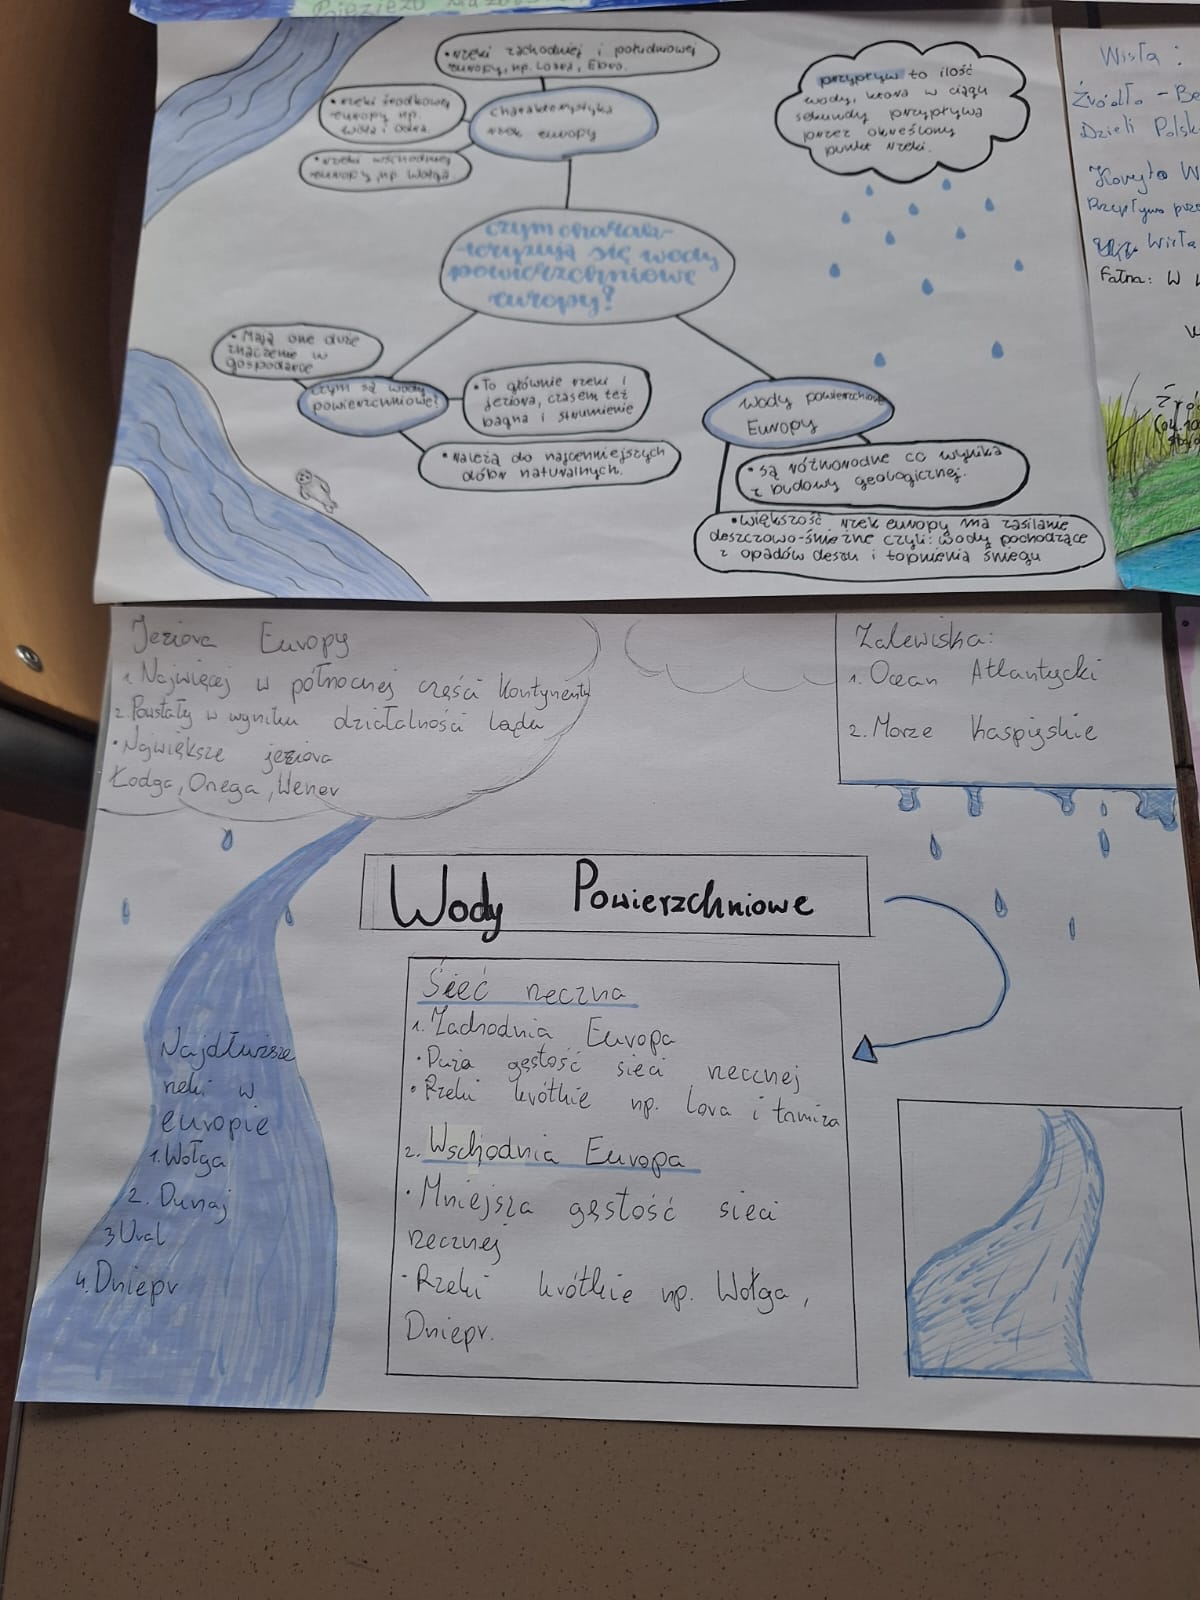 • rzeki zachodniej i południowej
Europy, np. Loara, Ebro.
• rzeki środkowej
europy np.
Wisła i Odra.
charakterystyka
rzek europy
• rzeki wschodniej
europy np Wołga.
przypływ to ilość
wody, która w ciągu
sekundy przypływa
przez określony
punkt rzeki.
czym charak-
-teryzują się wody
powierzchniowe
europy?
• Mają one duże
znaczenie w
gospodarce
czym są wody
powierzchniowe?
• To głównie rzeki i
jeziora, czasem też
bagna i strumienie
• należą do najcenniejszych
dóbr naturalnych.
wody powierzchniowe
Europy
• są różnorodne co wynika
z budowy geologicznej.
• większość rzek europy ma zasilanie
deszczowo-śnieżne czyli: wody pochodzące
z opadów deszu i topnienia śniegu
Wisła:
Źródło - Be
Dzieli Polsk
Koryto W
Przepływa prze
Wisła
W
Jeziora Europy
1. Najwięcej w północnej części kontynentu
2. Powstały w wyniku działalności lądu
• Największe jeziora
Łodga, Onega, Wener
Zalewiska:
1. Ocean Atlantycki
2. Morze Kaspijskie
Wody Powierzchniowe
Sieć rzeczna
1. Zachodnia Europa
• Duża gęstość sieci rzecznej
• Rzeki krótkie np. Lora i tamiza
2. Wschodnia Europa
• Mniejsza gęstość sieci
rzecznej
• Rzeki krótkie np. Wołga,
Dniepr.
Najdłuższe
rzeki w
europie
1. Wołga
2. Dunaj
3 Ural
4. Dniepr